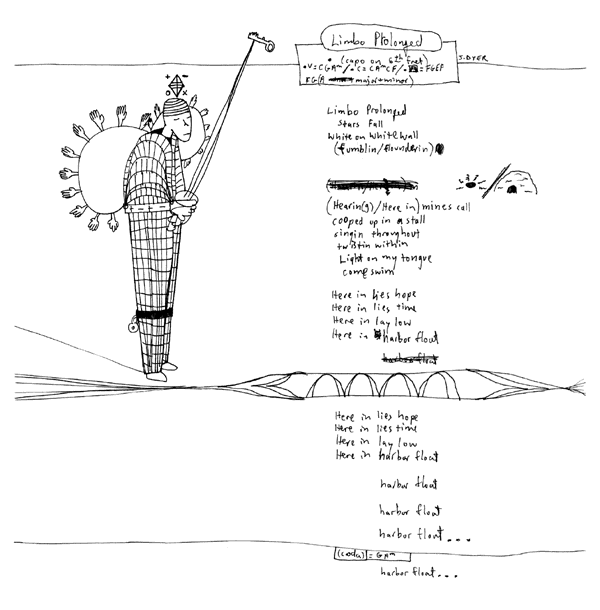 Limbo Prolonged
J. DYER
(capo on 6th fret)
• V = CGAm / • C = CAmCF / • = FGEF
FG(A major + minor)
Limbo Prolonged
Stars Fall
White on White Wall
(fumblin/flounderin)
(Hearin(g)/Here in) mines call
cooped up in a stall
singin throughout
twistin within
Light on my tongue
come swim
Here in lies hope
Here in lies time
Here in lay low
Here in harbor float
harbor float
Here in lies hope
Here in lies time
Here in lay low
Here in harbor float
harbor float
harbor float
harbor float...
(coda) = GAm
harbor float...